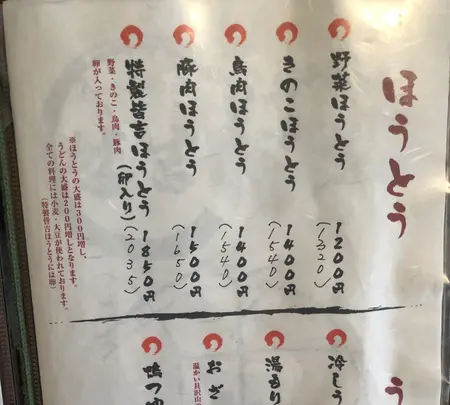 ほうとう
野菜ほうとう 1200円
(1320)
きのこほうとう 1400円
(1540)
鳥肉ほうとう 1400円
(1540)
豚肉ほうとう 1500円
(1650)
特製皆吉ほうとう(卵入り) 1850円
(2035)
野菜・きのこ・鳥肉・豚肉
卵が入っております。
※ほうとうの大盛は300円増し、
うどんの大盛は200円増しとなります。
全ての料理には小麦・大豆が使われております。
(特製皆吉ほうとうには卵)
う
冷しう
湯もり
おざ
温かい具沢山の
鴨つゆ